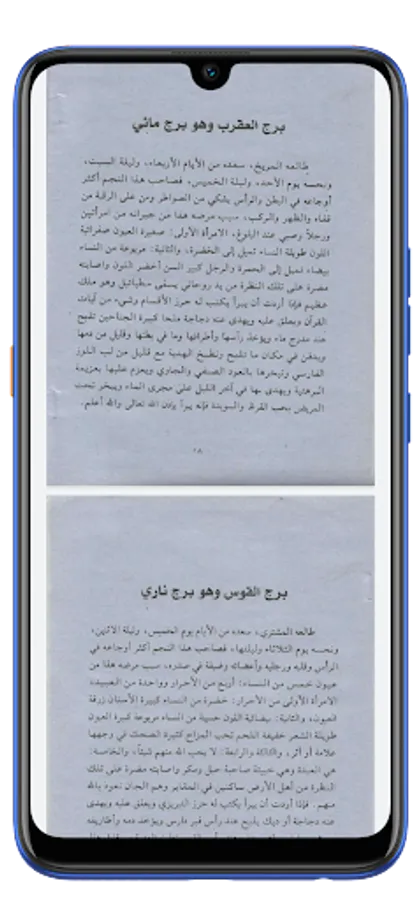 برج العقرب وهو برج مائي
طالعه المريخ، سعده من الأيام الأربعاء، وليلة السبت،
ونحسه يوم الأحد، وليلة الخميس، فصاحب هذا النجم أكثر
أوجاعه في البطن والرأس يشتكي من الصواطر ومن على الرقبة من
قفاه والظهر والركب، سبب مرضه هذا من جيرانه من امرأتين
ورجلاً وصبي عند البلوغ، الامرأة الأولى: صغيرة العيون صفراتية
اللون طويلة النساء تميل إلى الخضرة، والثانية: مربوعة من النساء
بيضاء تميل إلى الحمرة والرجل كبير السن أخضر اللون وإصابته
مضرة على تلك النظرة من يد روحاني يسمى وهو ملك
عظيم فإذا أردت أن يبرأ يكتب له حرز الأقسام وشيء من آيات
القرآن ويعلق عليه ويهدى عنه دجاجة ملحا كبيرة الجناحين تذبح
عند مدرج ماء ويؤخذ رأسها وأطرافها وما في بطنها وقليل من دمها
ويدفن في مكان ما تذبح وتطبخ الهدية مع قليل من لب اللوز
الفارسي وتبخرها بالعود الصنفي والجاوي ويعزم عليها بعزيمة
البرهتية ويهدى بها في آخر الليل على مجرى الماء ويبخر تحت
المريض بحصا القرنفل والسويدة فإنه يبرأ بإذن الله تعالى والله أعلم.
٢٨
برج القوس وهو برج ناري
طالعه المشتري، سعده من الأيام يوم الخميس، وليلة الاثنين،
ونحسه يوم الثلاثاء وليلتها، فصاحب هذا النجم أكثر أوجاعه في
الرأس وقلبه ورجليه وأعضائه وضيقة في صدره، سبب مرضه هذا من
عيون خمس من النساء: أربع من الأحرار وواحدة من العبيد،
الامرأة الأولى من الأحرار: خضرة من النساء كبيرة الأسنان زرقة
العيون، والثانية: بيضائية اللون حسينة من النساء مربوعة كبيرة العيون
طويلة الشعر خفيفة اللحم تحب المزاح كثيرة الضحك في وجهها
علامة أو أثر، والثالثة والرابعة: لا يحب الله منهم شيئاً، والخامسة:
هي العبدة وهي خبيثة صاحبة حيل ومكر وإصابته مضرة على تلك
النظرة من أهل الأرض ساكنين في المقابر وهم الجان نعوذ بالله
منهم. فإذا أردت أن يبرأ يكتب له حرز ويعلق عليه ويهدى
عنه دجاجة أو ديك يذبح عند رأس قبر دارس ويؤخذ دمه وأطاريفه